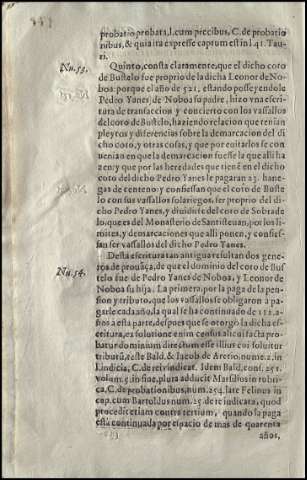 probatio probata, l. cum precibus, C. de probatio
nibus, & quia ita expresse captum est in l. 41. Tau-
ri.
Nu. 53.
Quinto, consta claramente, que el dicho coto
de Bustelo fue proprio de la dicha Leonor de No-
boa: porque el año de 521, estando posseyendole
Pedro Yanes de Noboa su padre, hizo vna escri-
tura de transaccion y concierto con los vassallos
del coto de Bustelo, haziendo relacion que tenian
pleytos y diferencias sobre la demarcacion del di
cho coto, y otras cosas, y que por euitarlos se con
uenian en que la demarcacion fuesse la que alli ha
zen: y que por las heredades que tienē en el dicho
coto del dicho Pedro Yanes le pagaran 23. hane-
gas de centeno: y confiessan que el coto de Buste
lo con sus vassallos solariegos, ser proprio del di-
cho Pedro Yanes, y diuidirse del coto de Sobrade
lo, que es del Monasterio de Santisteuan, por los li
mites, y demarcaciones que alli ponen, y confies-
san ser vassallos del dicho Pedro Yanes.
Nu. 54.
Desta escritura tan antigua resultan dos gene-
ros de prouāça, de que el dominio del coto de Bus
telo fue de Pedro Yanes de Noboa, y Leonor de
Noboa su hija. La primera, por la paga de la pen-
sion y tributo, que los vassallos se obligaron a pa-
garle cada año, la qual se ha continuado de 112. a-
ños a esta parte, despues que se otorgò la dicha es-
critura, ex solutione enim census alicui facta pro-
batur dominum directum esse illius cui soluitur
tributū, teste Bald. & Iacob de Aretio nume. 2. in
l. indicia, C. de rei vindicat. Idem Bald. cons. 251.
volum. 5. in fine, plura adducit Marsilios in rubri-
ca, C. de probationibus, num. 254. late Felinus in
cap. cum Bartoldus num. 25. de re iudicata, quod
procedit etiam contra tertium, quando la paga
està continuada por espacio de mas de quarenta
años,